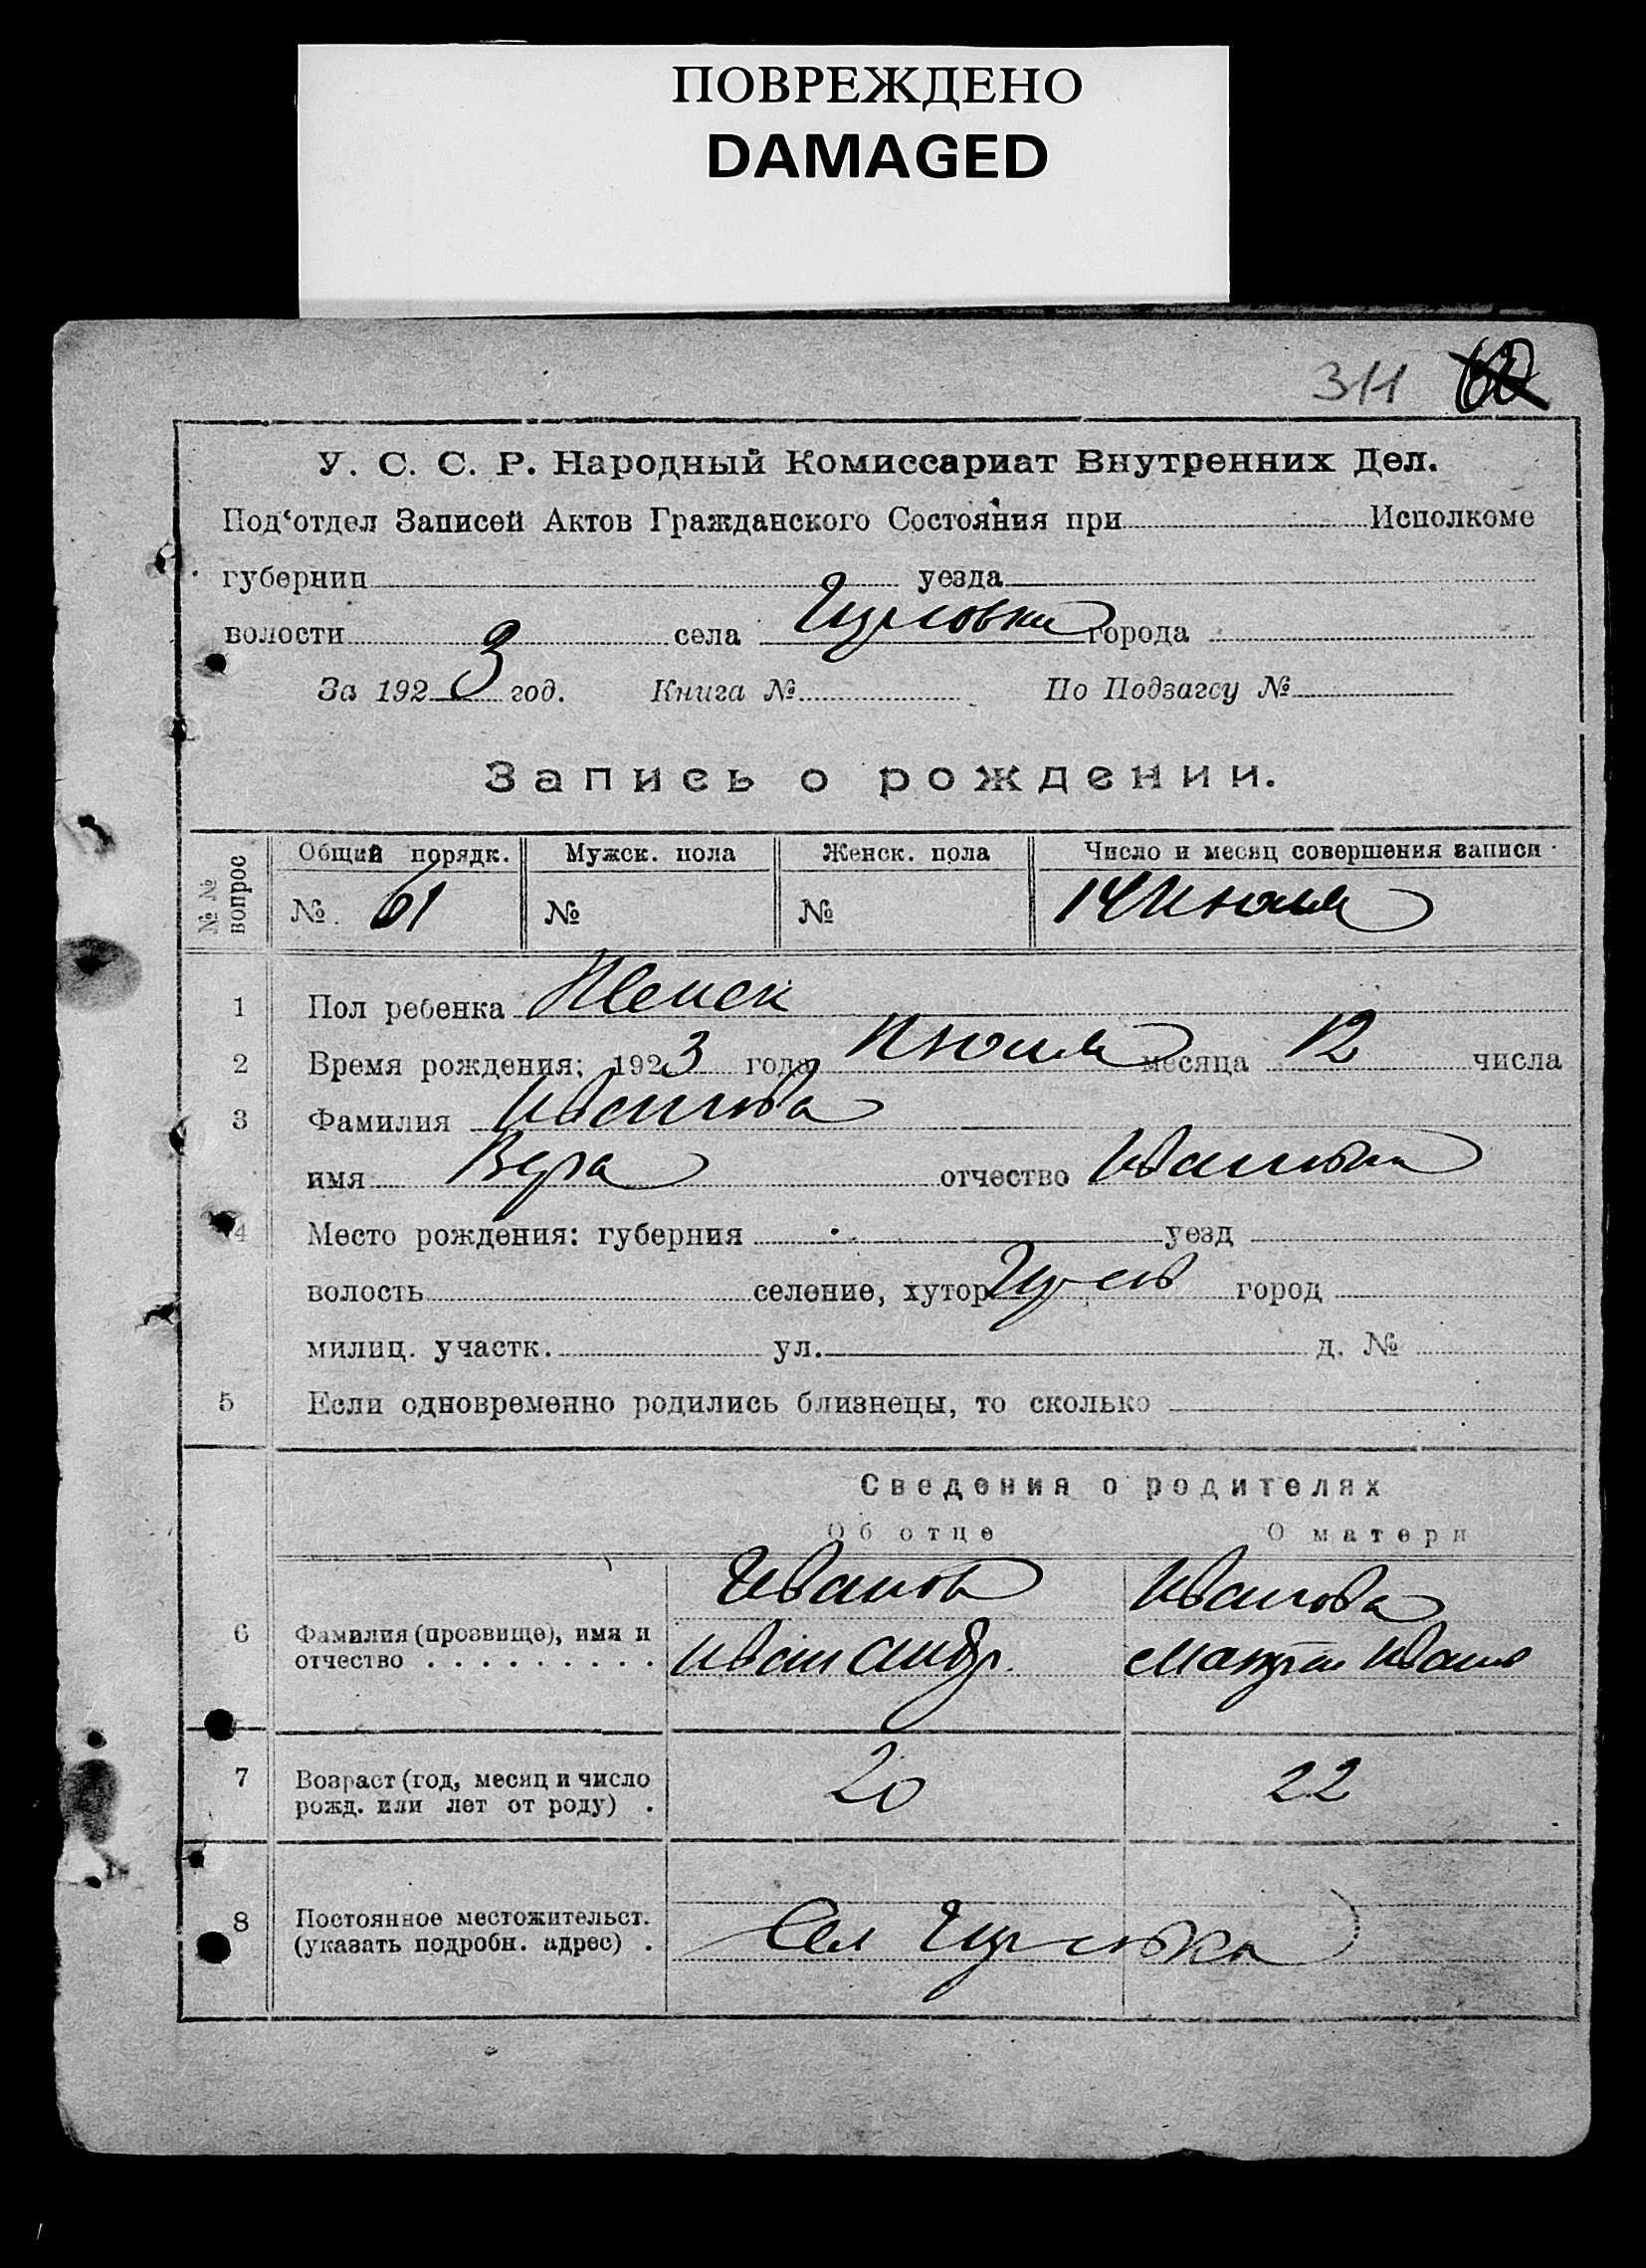 ПОВРЕЖДЕНО
DAMAGED
311
У. С. С. Р. Народный Комиссариат Внутренних Дел.
Под‘отдел Записей Актов Гражданского Состояния при Исполкоме
губернии уезда
волости села города
За 192 3 год. Книга № По Подзагсу №
Запись о рождении.
№№ вопрос
Общий порядк. Мужск. пола Женск. пола Число и месяц совершения записи
№ 61 № № 14 Июля
1 Пол ребенка Женск
2 Время рождения: 1923 года Июля месяца 12 числа
3 Фамилия Иванова
имя Вера отчество Ивановна
4 Место рождения: губерния уезд
волость селение, хутор город
милиц. участк. ул. д. №
5 Если одновременно родились близнецы, то сколько
Сведения о родителях
Об отце О матери
Иванов Иванова
6 Фамилия (прозвище), имя и
отчество Иван Андр. Иванов
7 Возраст (год, месяц и число
рожд. или лет от роду) 20 22
8 Постоянное местожительст.
(указать подробн. адрес) Сел